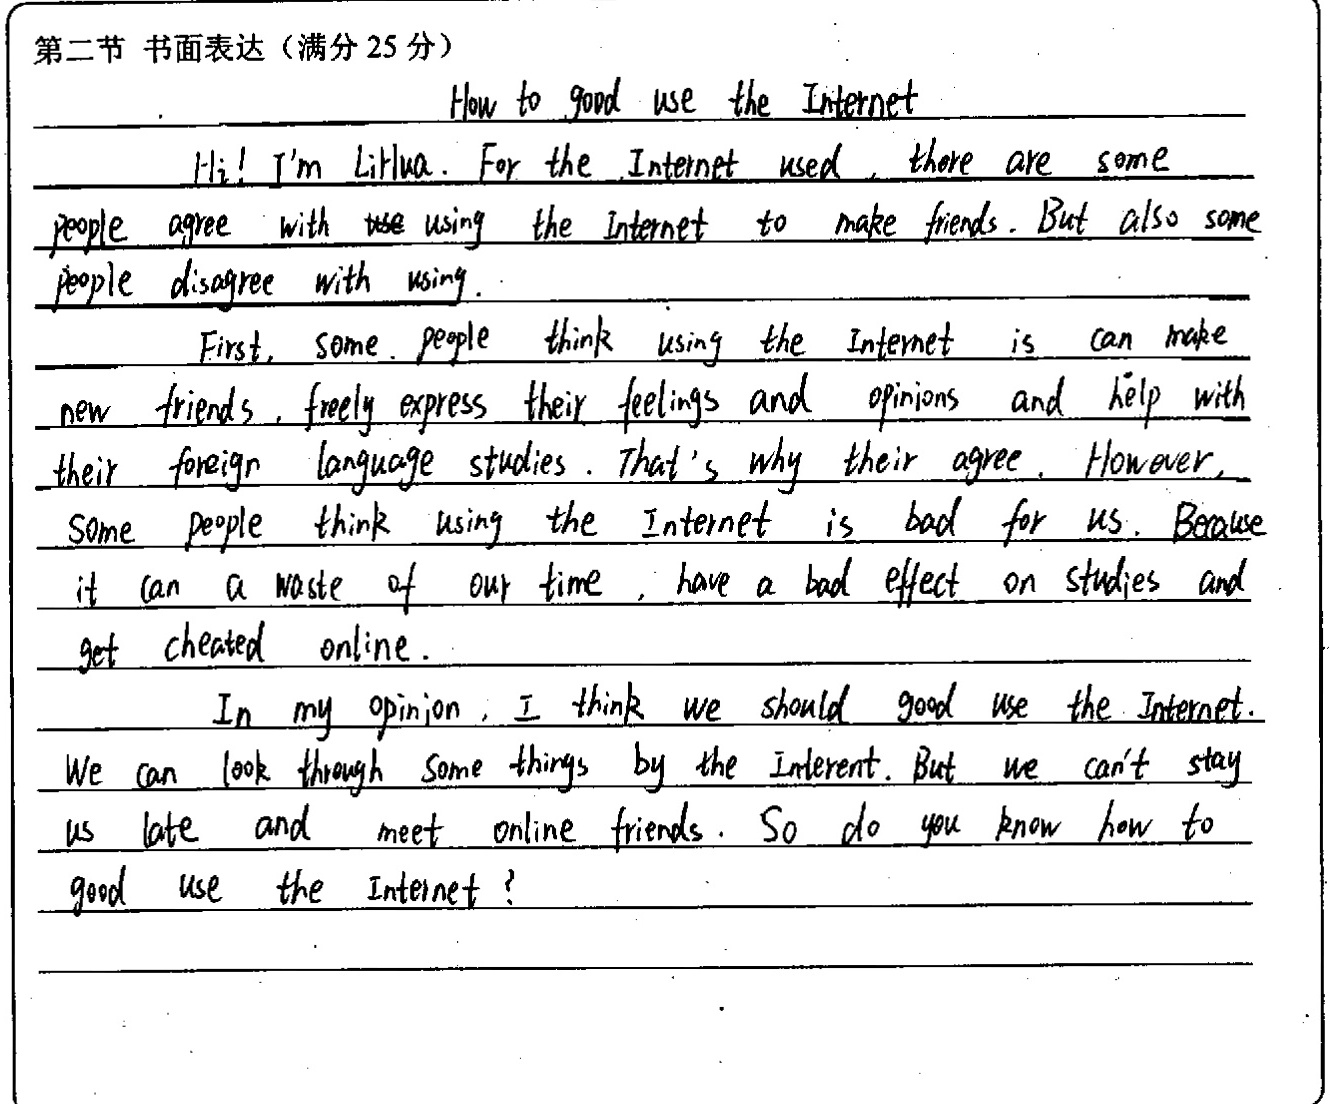 第二节 书面表达（满分 25 分）
How to good use the Internet
Hi! I'm LiHua. For the Internet used, there are some
people agree with using the Internet to make friends. But also some
people disagree with using.
First, some people think using the Internet is can make
new friends, freely express their feelings and opinions and help with
their foreign language studies. That's why their agree. However,
some people think using the Internet is bad for us. Because
it can a waste of our time, have a bad effect on studies and
get cheated online.
In my opinion, I think we should good use the Internet.
We can look through some things by the Interent. But we can't stay
us late and meet online friends. So do you know how to
good use the Internet?